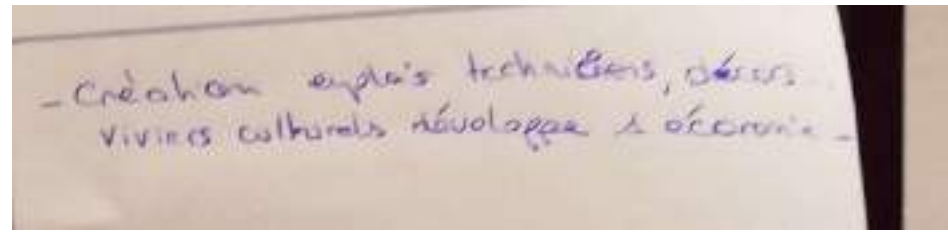 - Création emplois techniciens, décors
viviers culturels développe l'économie -